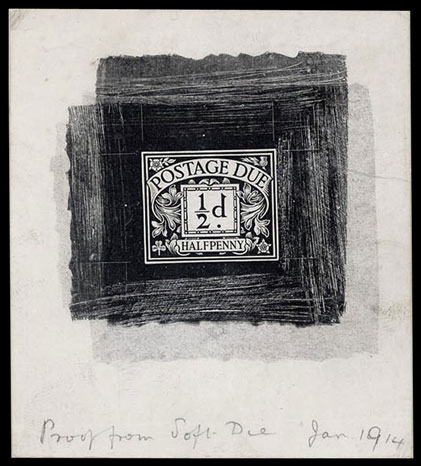 POSTAGE DUE
½d.
HALFPENNY
Proof from Soft Die Jan. 1914